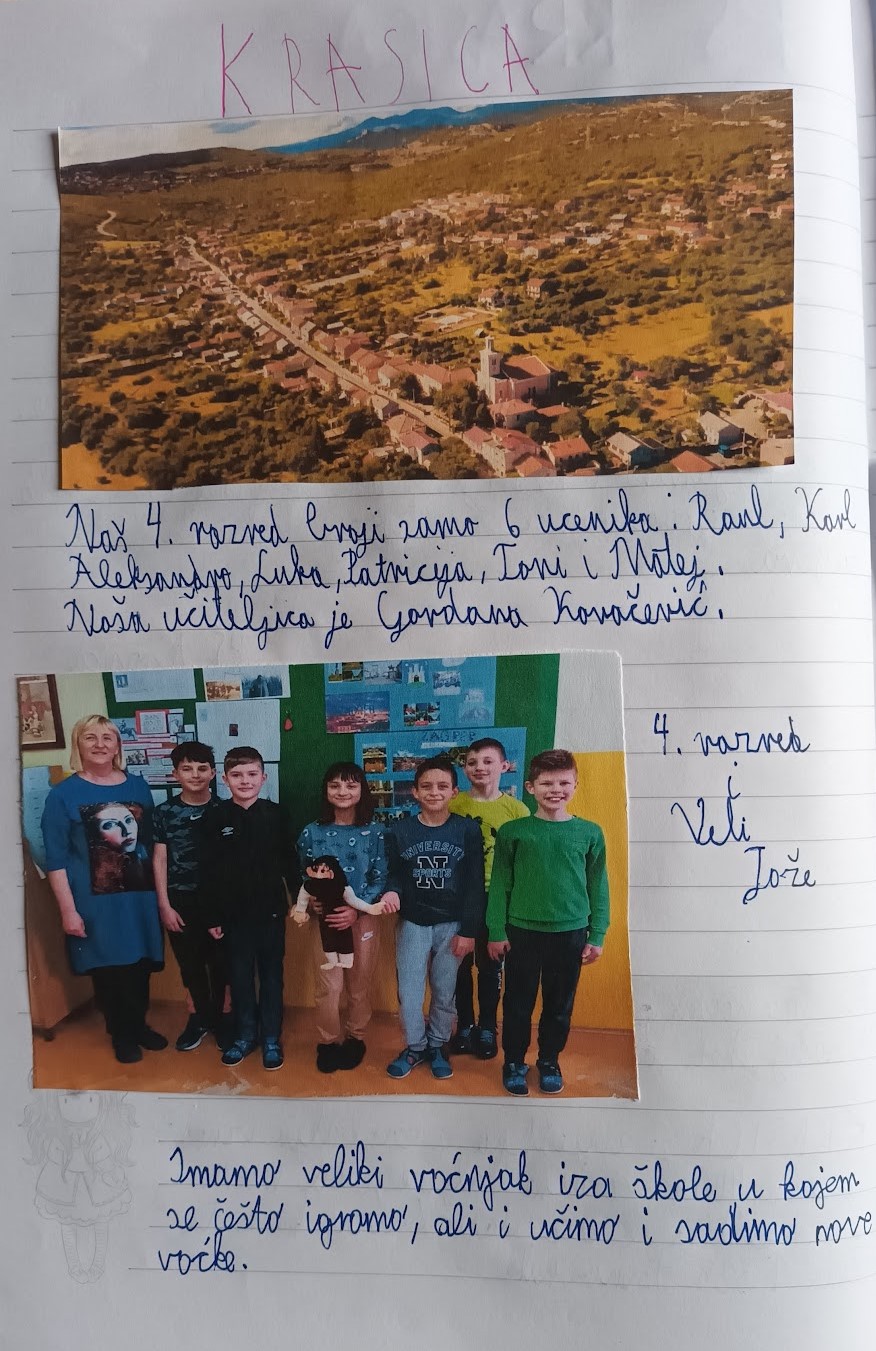 KRASICA
Naš 4. razred broji samo 6 ucenika: Raul, Karl
Aleksandro, Luka, Patricija, Toni i Matej.
Naša učiteljica je Gordana Kovačević.
ZAGREB
UNIVERSITY
N
SPORTS
4. razred
i
Veli
Jože
Imamo veliki voćnjak iza škole u kojem
se često igramo, ali i učimo i sadimo nove
voćke.